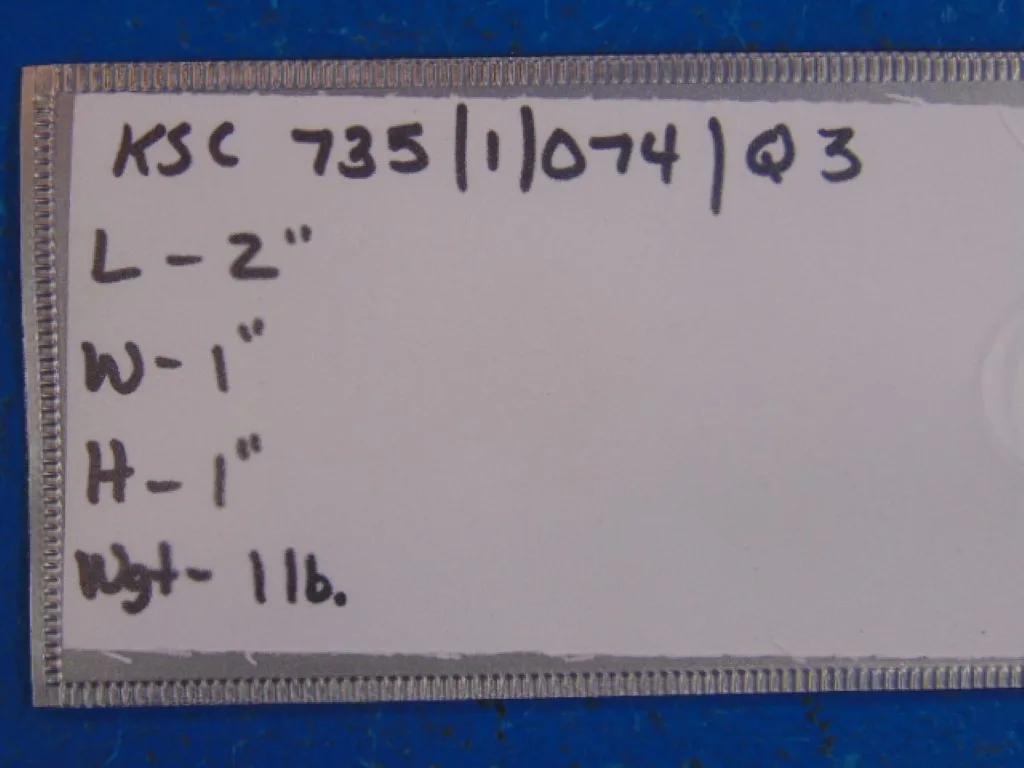 KSC 735|1|074|Q3
L - 2"
W - 1"
H - 1"
Wgt - 1 lb.